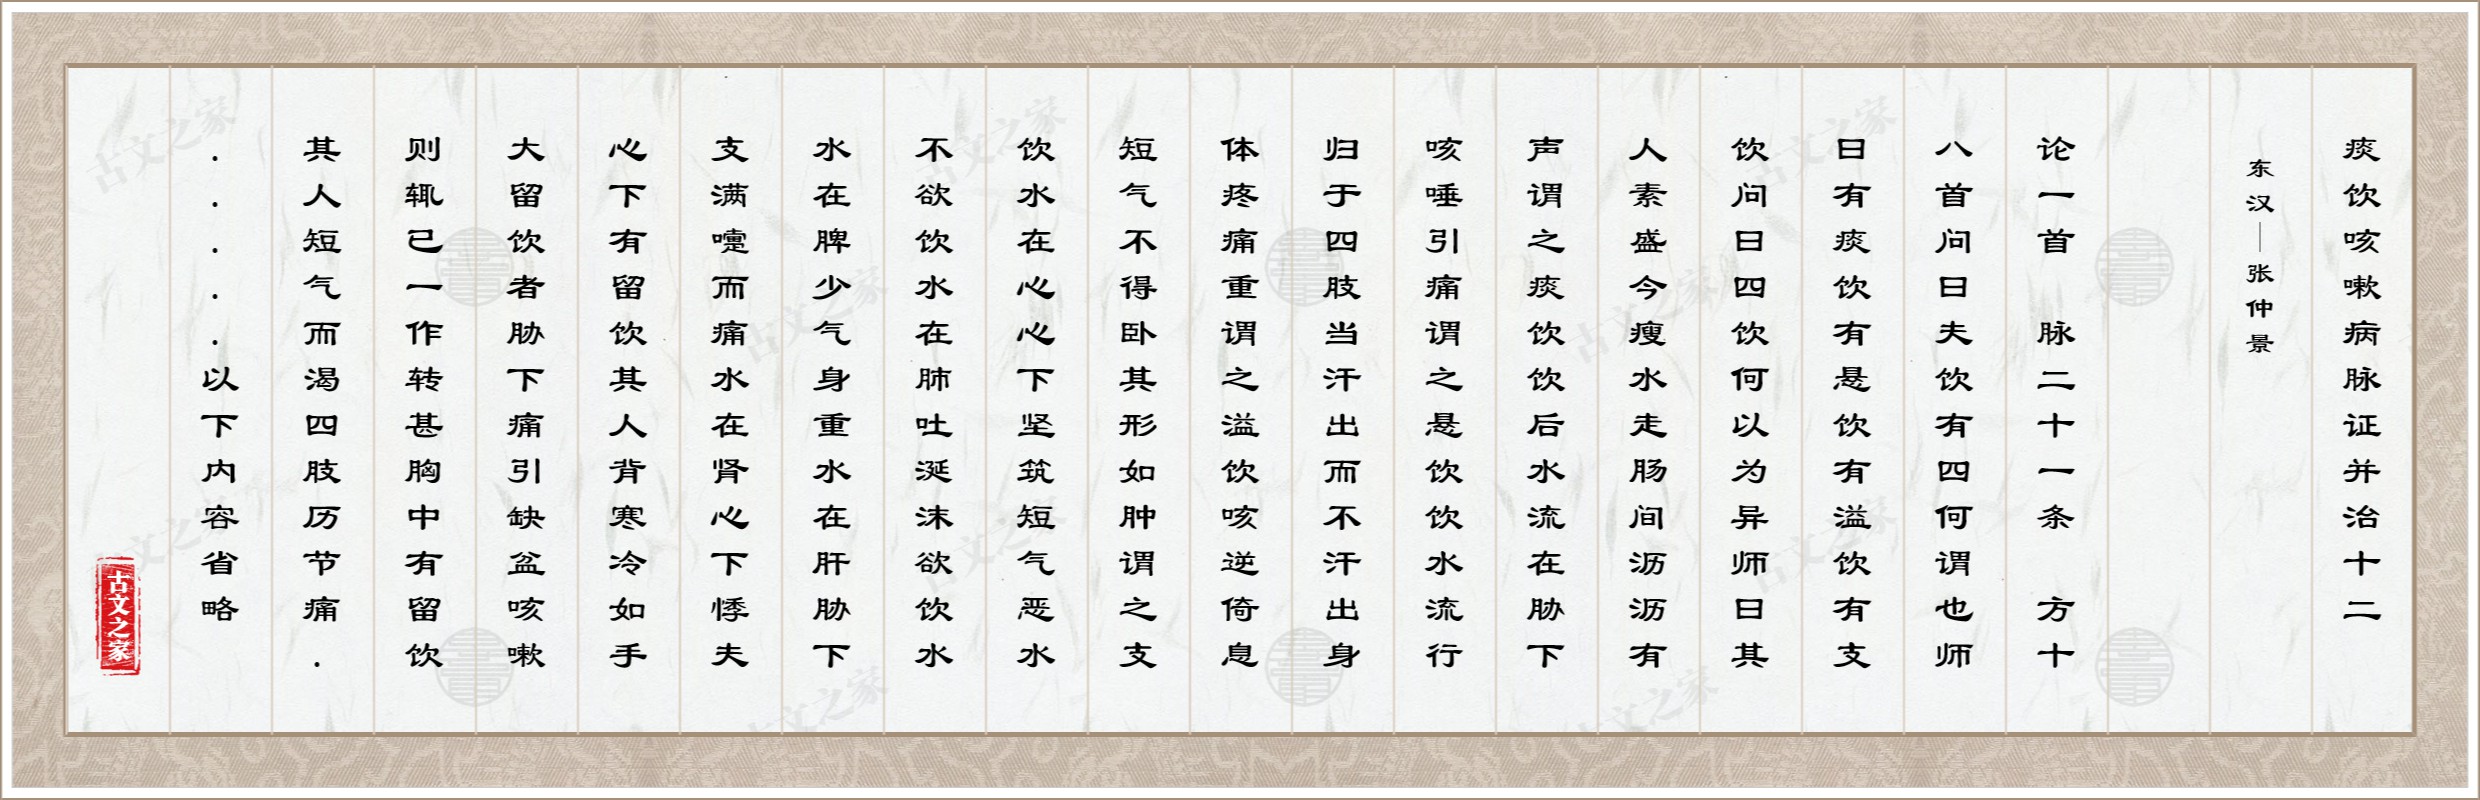 痰饮咳嗽病脉证并治十二
东汉—张仲景
论一首　脉二十一条　方十
八首问曰夫饮有四何谓也师
曰有痰饮有悬饮有溢饮有支
饮问曰四饮何以为异师曰其
人素盛今瘦水走肠间沥沥有
声谓之痰饮饮后水流在胁下
咳唾引痛谓之悬饮饮水流行
归于四肢当汗出而不汗出身
体疼痛重谓之溢饮咳逆倚息
短气不得卧其形如肿谓之支
饮水在心心下坚筑短气恶水
不欲饮水在肺吐涎沫欲饮水
水在脾少气身重水在肝胁下
支满嚏而痛水在肾心下悸夫
心下有留饮其人背寒冷如手
大留饮者胁下痛引缺盆咳嗽
则辄已一作转甚胸中有留饮
其人短气而渴四肢历节痛.
.....以下内容省略
古文之家